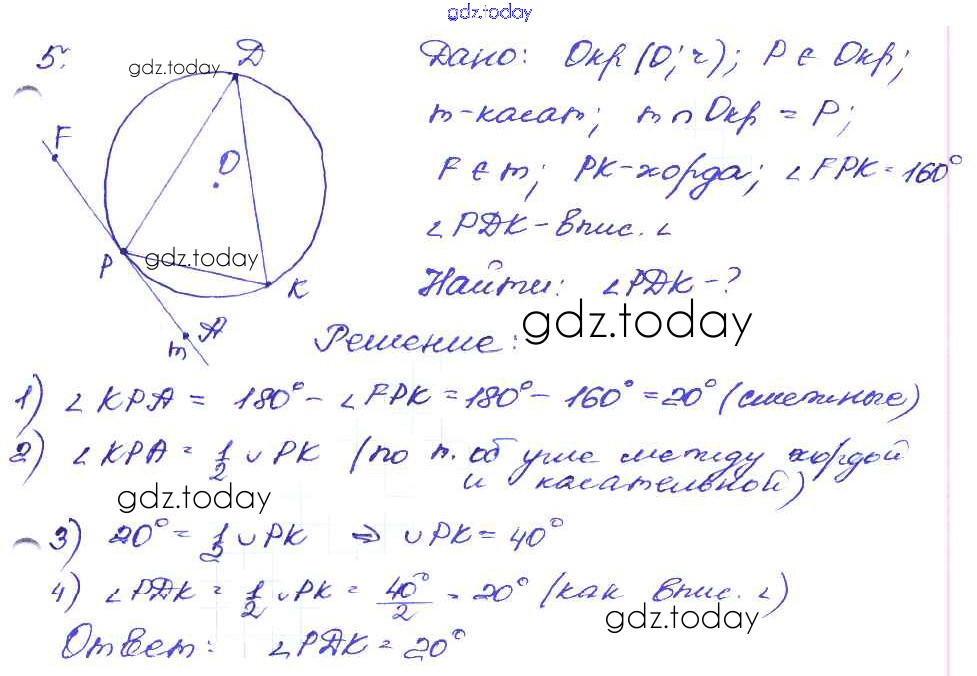 gdz.today
5.
gdz.today
Д
F
O
P
gdz.today
K
A
m
Дано: Окр (O; r); P ∈ Окр;
m-касат; m ∩ Окр = P;
F ∈ m; PK-хорда; ∠FPK = 160°
∠PДK - впис. ∠
Найти: ∠PДK - ?
gdz.today
Решение:
1) ∠KPA = 180° - ∠FPK = 180° - 160° = 20° (смежные)
2) ∠KPA = 1/2 ∪PK (по т. об угле между хордой
и касательной)
gdz.today
3) 20° = 1/2 ∪PK ⇒ ∪PK = 40°
4) ∠PДK = 1/2 ∪PK = 40°/2 = 20° (как впис. ∠)
gdz.today
Ответ: ∠PДK = 20°